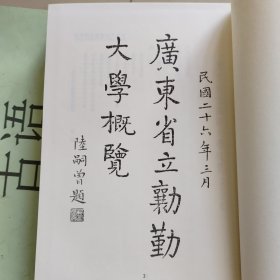 民國二十六年三月
廣東省立勷勤
大學概覽
陸嗣曾題
古语
2